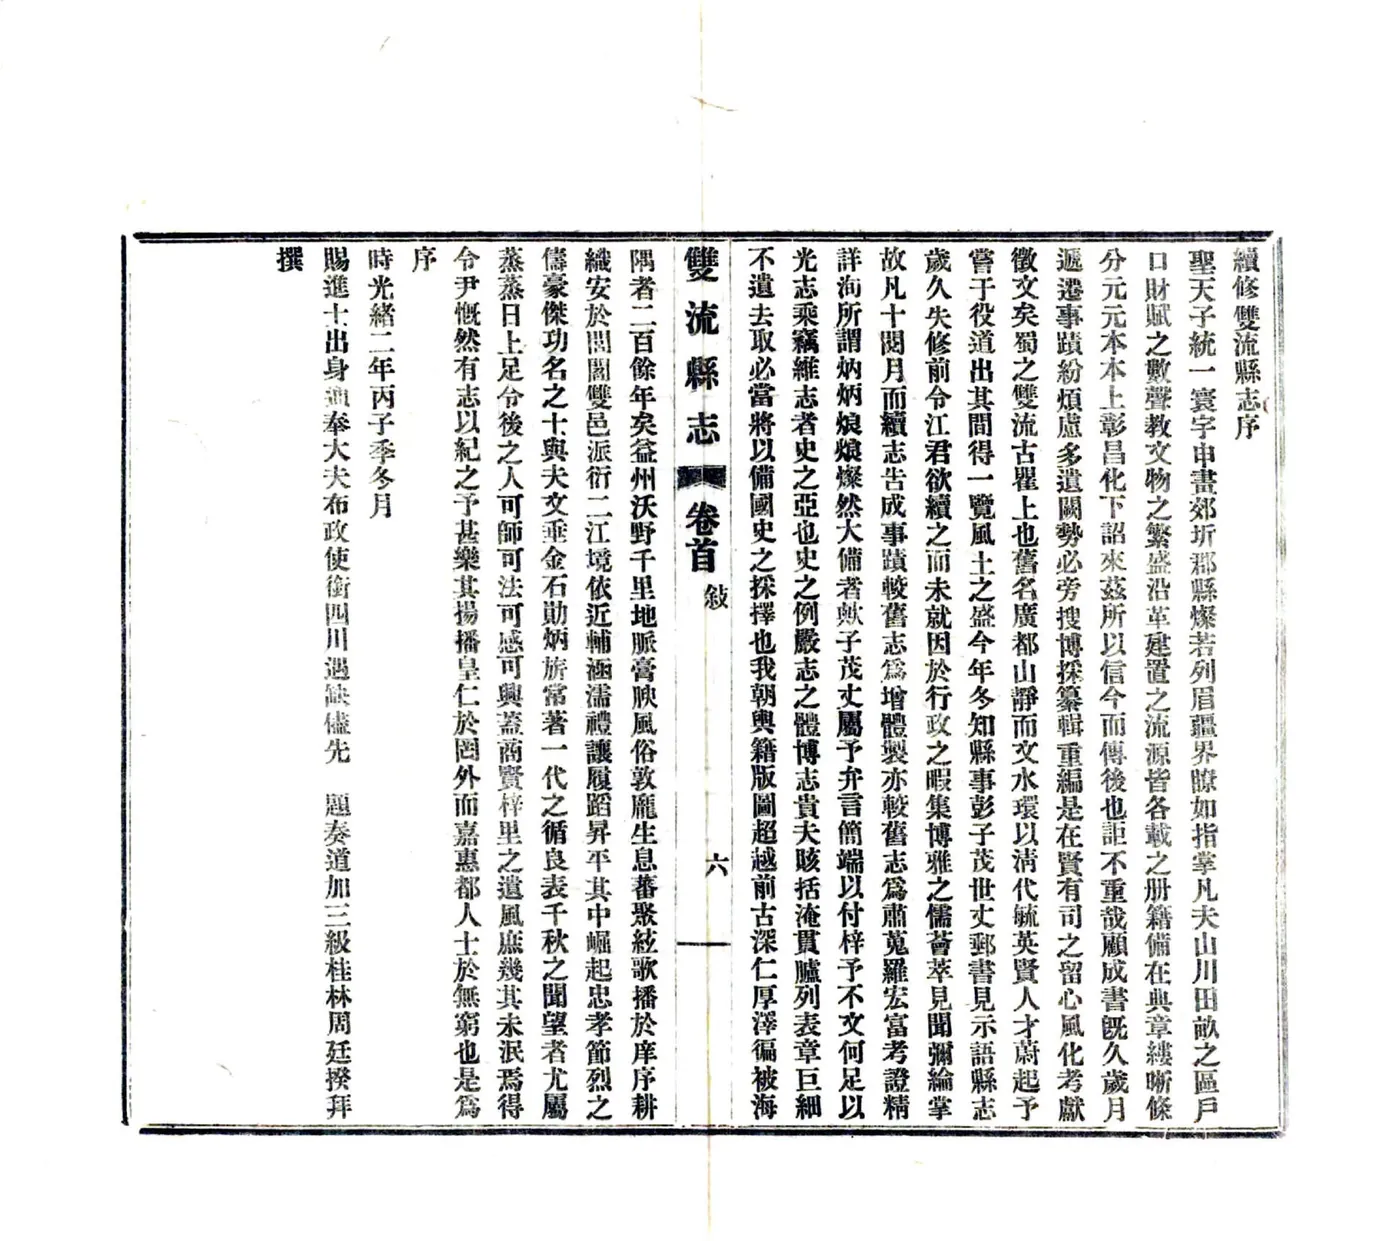 續修雙流縣志序
聖天子統一寰宇申畫郊圻郡縣燦若列眉疆界瞭如指掌凡夫山川田畝之區戶
口財賦之數聲教文物之繁盛沿革建置之流源皆各載之册籍備在典章縷晰條
分元元本本上彰昌化下詔來茲所以信今而傳後也詎不重哉顧成書旣久歲月
遞遷事蹟紛煩慮多遺闕勢必旁搜博採纂輯重編是在賢有司之留心風化考獻
徵文矣蜀之雙流古瞿上也舊名廣都山靜而文水環以淸代毓英賢人才蔚起予
嘗于役道出其間得一覽風土之盛今年冬知縣事彭子茂世丈郵書見示語縣志
歲久失修前令江君欲續之而未就因於行政之暇集博雅之儒薈萃見聞彌綸掌
故凡十閱月而續志告成事蹟較舊志爲增體製亦較舊志爲肅蒐羅宏富考證精
詳洵所謂炳炳烺烺燦然大備者歟子茂丈屬予弁言簡端以付梓予不文何足以
光志乘竊維志者史之亞也史之例嚴志之體博志貴夫賅括淹貫臚列表章巨細
不遺去取必當將以備國史之採擇也我朝輿籍版圖超越前古深仁厚澤徧被海
雙流縣志 卷首 敍 六
隅者二百餘年矣益州沃野千里地脈膏腴風俗敦龐生息蕃聚絃歌播於庠序耕
織安於閭閻雙邑派衍二江境依近輔涵濡禮讓履蹈昇平其中崛起忠孝節烈之
儔豪傑功名之士與夫文垂金石勛炳旂常著一代之循良表千秋之聞望者尤屬
蒸蒸日上足令後之人可師可法可感可興蓋商賢梓里之遺風庶幾其未泯焉得
令尹慨然有志以紀之予甚樂其揚播皇仁於罔外而嘉惠都人士於無窮也是爲
序
時光緒二年丙子季冬月
賜進士出身通奉大夫布政使銜四川遇缺儘先 題奏道加三級桂林周廷揆拜
撰